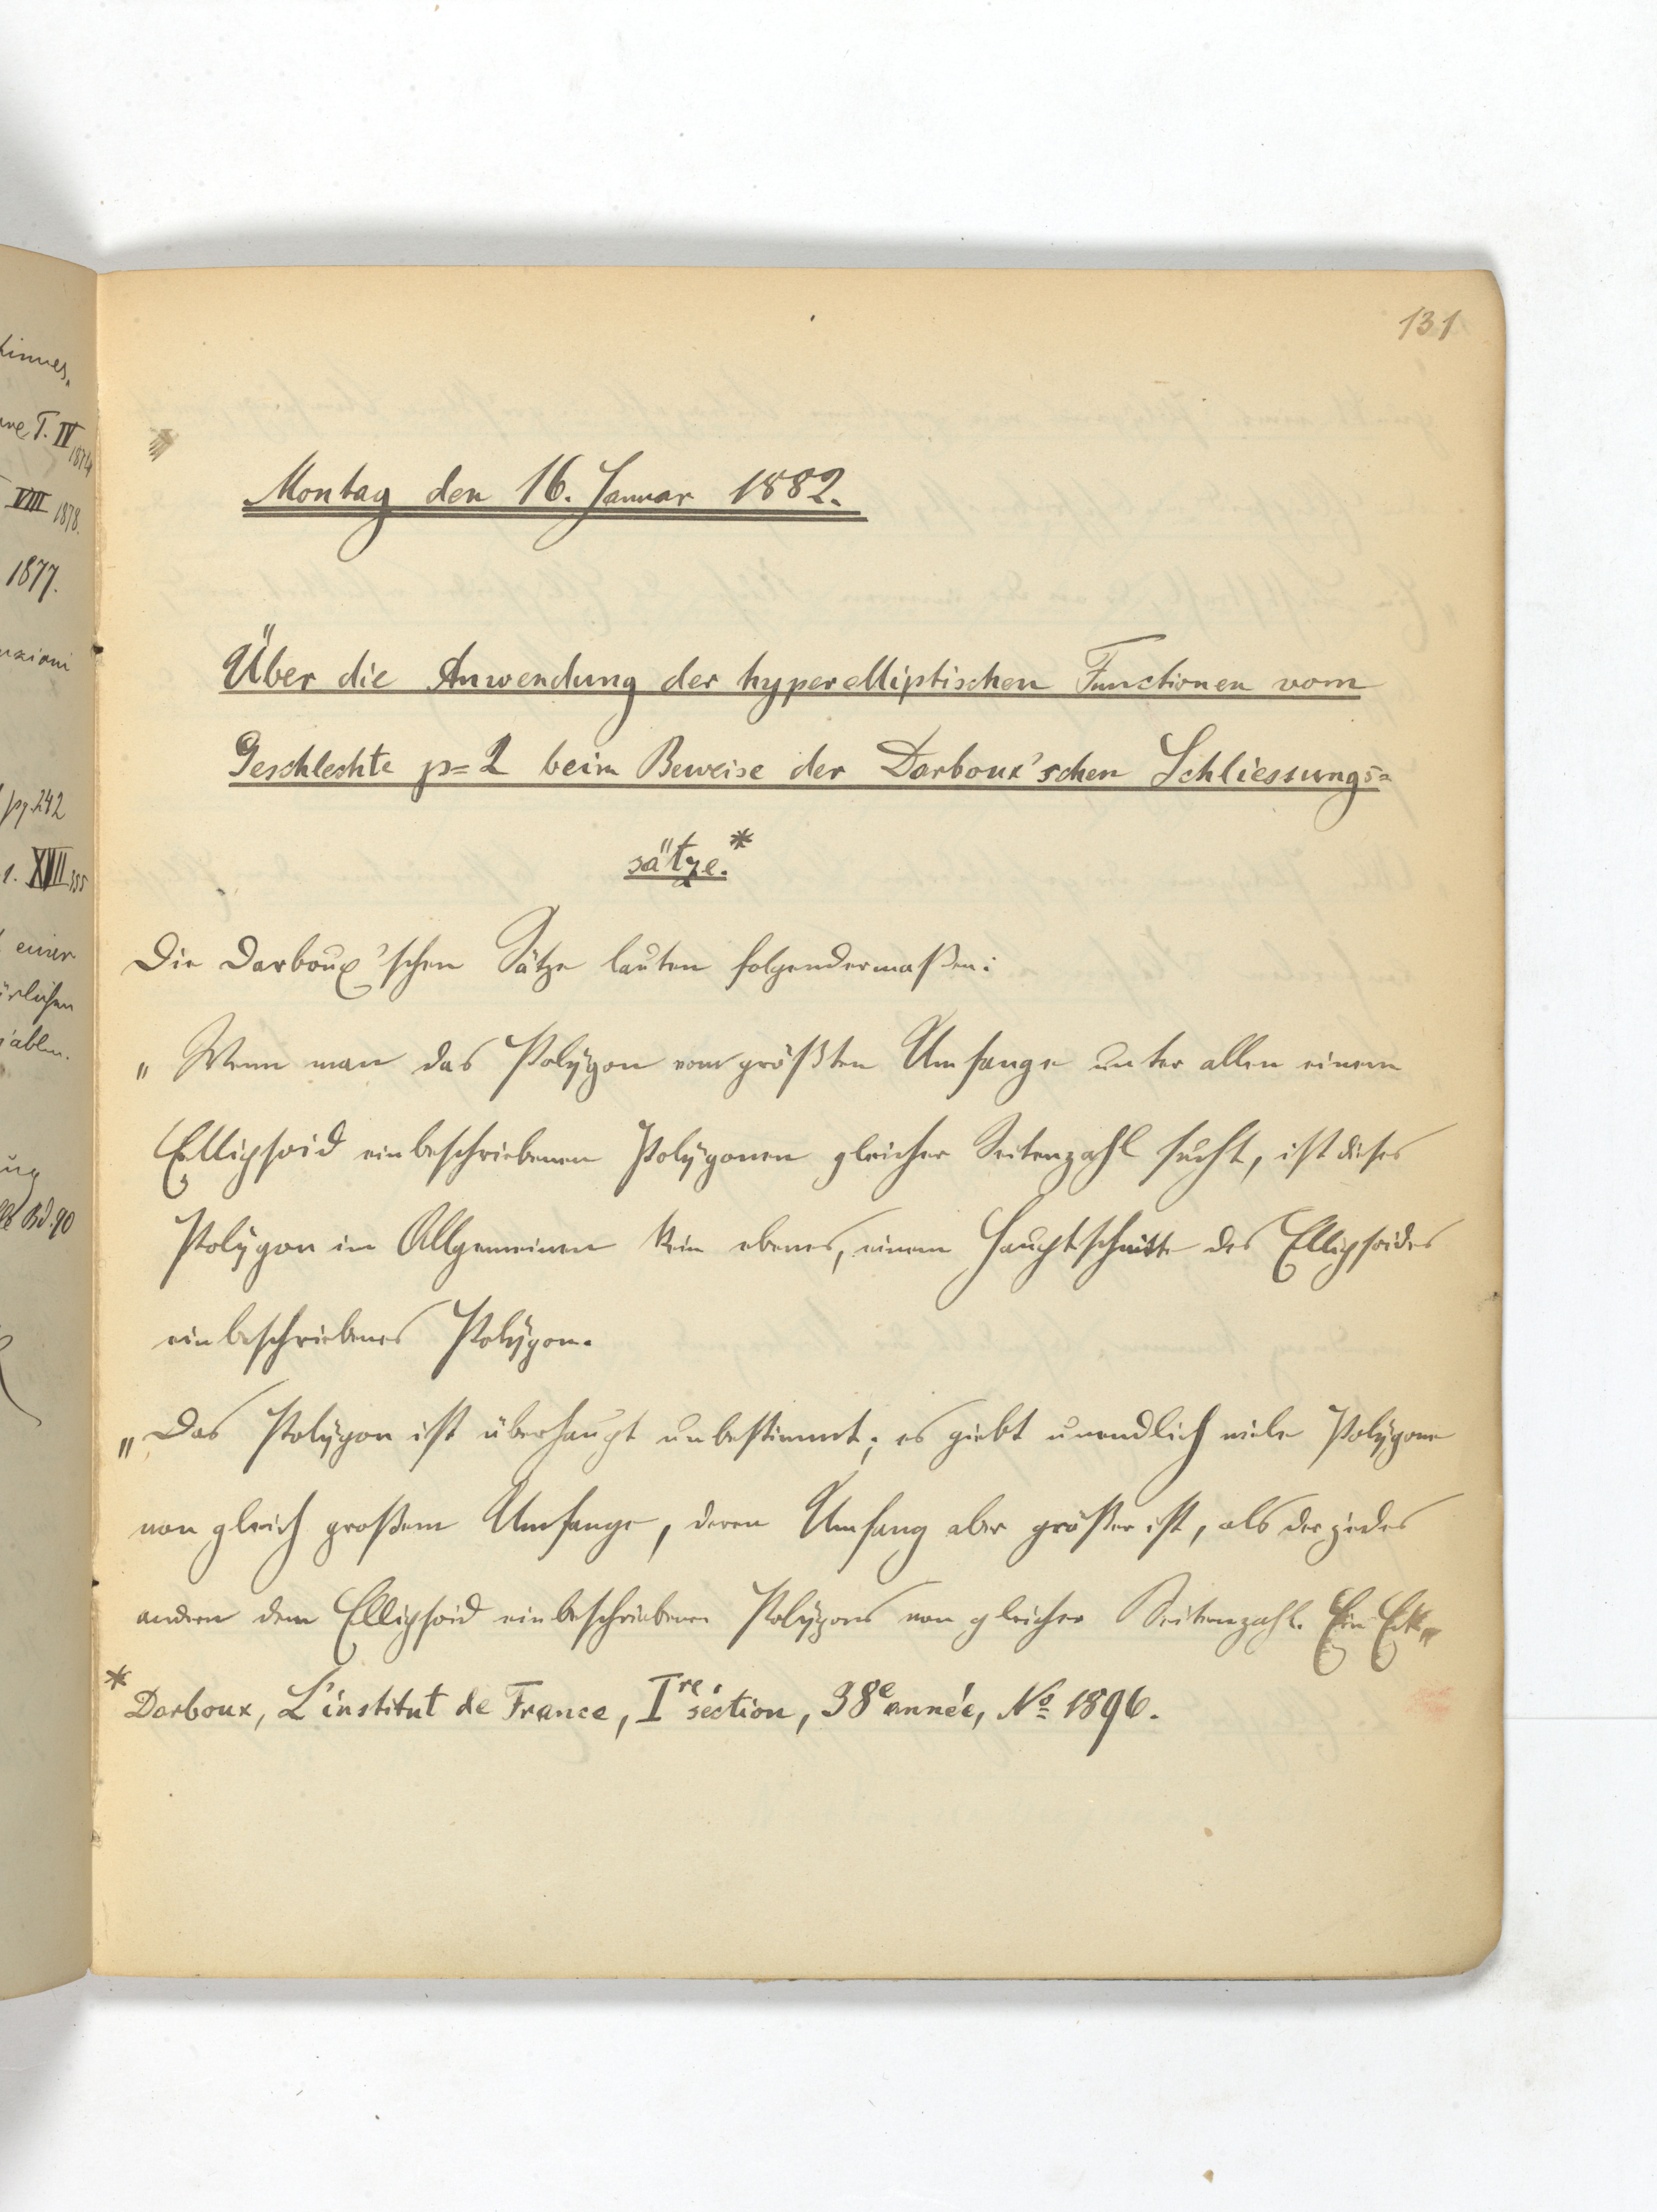 131
Montag den 16. Januar 1882.
Über die Anwendung der hyperelliptischen Functionen vom
Geschlechte p=2 beim Beweise der Darboux'schen Schliessungs-
sätze.*
Die Darboux'schen Sätze lauten folgendermaßen:
„Wenn man das Polygon vom größten Umfange unter allen einem
Ellipsoid einbeschriebenen Polygonen gleicher Seitenzahl sucht, ist dieses
Polygon im Allgemeinen kein ebenes, einem Hauptschnitte des Ellipsoides
einbeschriebenes Polygon.
„Das Polygon ist überhaupt unbestimmt; es giebt unendlich viele Polygone
von gleich großem Umfange, deren Umfang aber größer ist, als der jedes
andern dem Ellipsoid einbeschriebenen Polygons von gleicher Seitenzahl. Ein Eck-
* Darboux, L'institut de France, Ire séction, 38e année, No 1896.
1877.
pg. 242
XVII 355
einer
Bd. 90
VIII 1878.
T. IV 1874